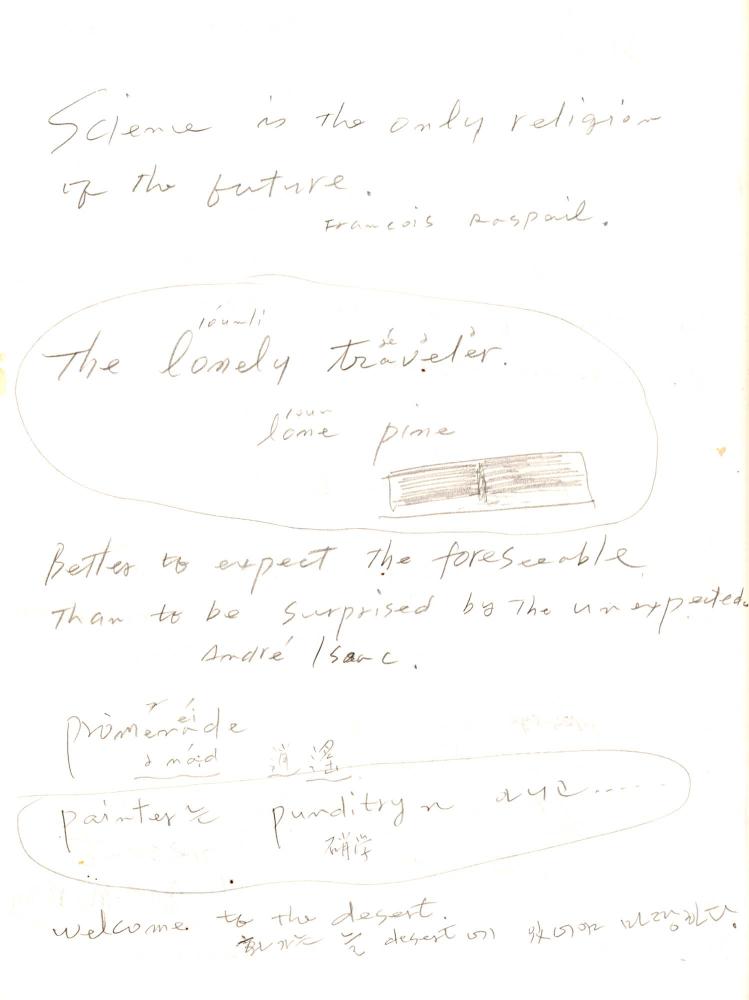 Science is the only religion
of the future.
Francois Raspail.
lóunli
The lonely traveler.
loun
lone pine
Better to expect the foreseeable
Than to be surprised by The unexpected.
André Isaac.
promenade
逍遙
painter는 punditry가 아니고......
碩学
welcome to the desert.
화가는 늘 desert에 있어야 마땅하다.